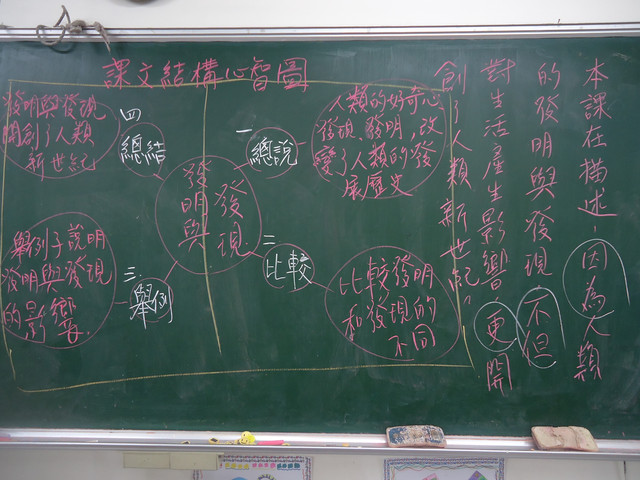 課文結構心智圖
發明與
發現
一
總說
人類的好奇心
發現、發明,改
變了人類的發
展歷史
二
比較
比較發明
和發現的
不同
三
舉例
舉例子說明
發明與發現
的影響
四
總結
發明與發現
開創了人類
新世紀
本課在描述,因為人類
的發明與發現,不但
對生活產生影響,更開
創了人類新世紀。